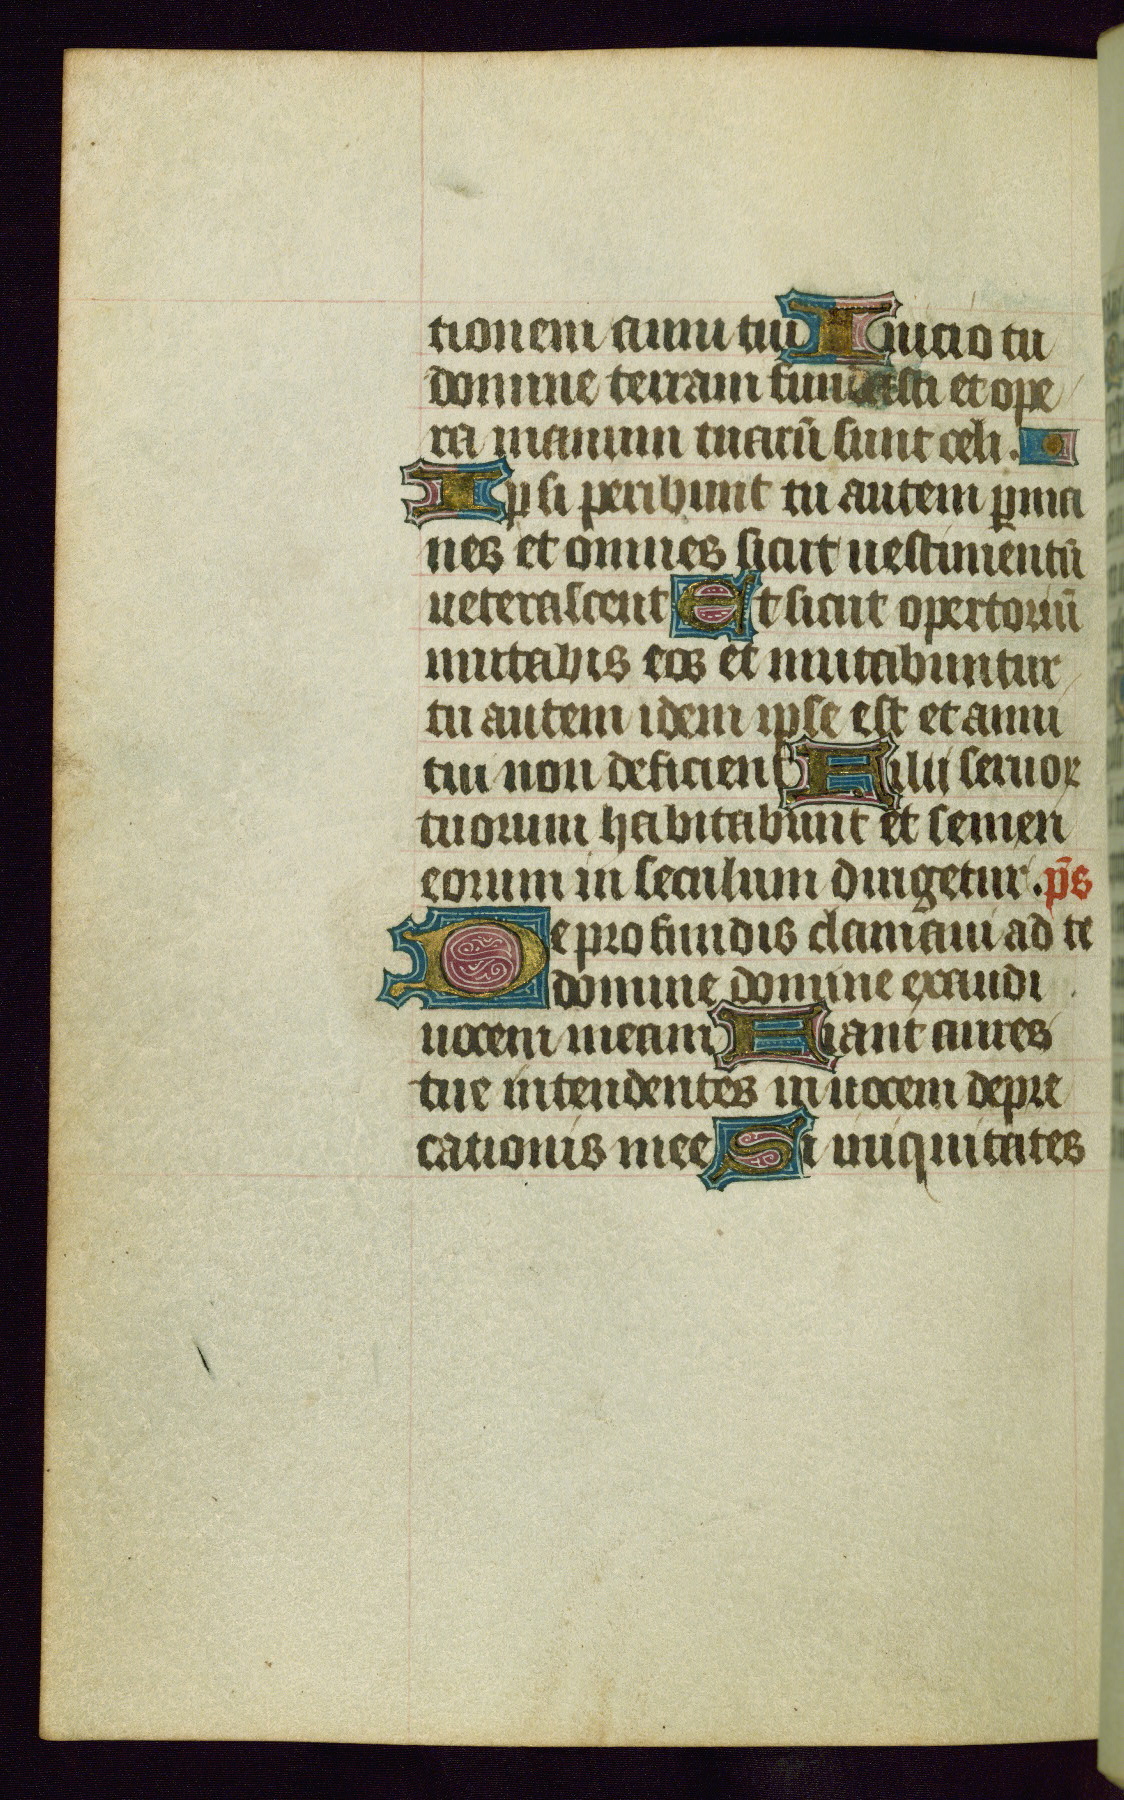 tionem anni tui Inicio tu
domine terram fundasti et ope
ra manuum tuarū sunt celi.
Ipsi peribunt tu autem p̄ma
nes et omnes sicut uestimentū
ueterascent Et sicut opertoriū
mutabis eos et mutabuntur
tu autem idem ipse est et anni
tui non deficient Filii seruor
tuorum habitabunt et semen
eorum in seculum dirigetur. p̄s
De profundis clamaui ad te
domine domine exaudi
uocem meam Fiant aures
tue intendentes in uocem depre
cationis mee Si iniquitates